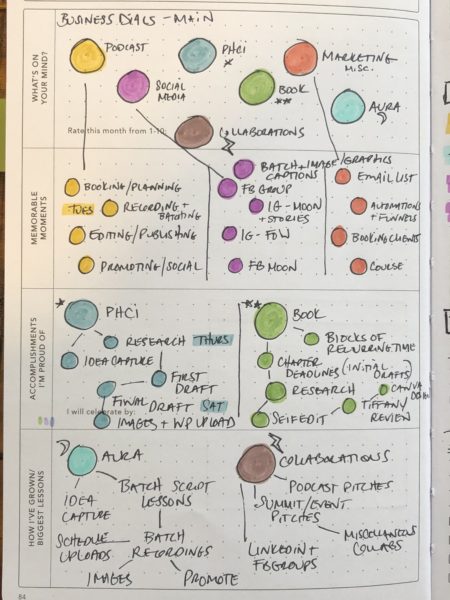 BUSINESS DIALS - MAIN
WHAT'S ON
YOUR MIND?
PODCAST
PHCI
*
MARKETING
MISC.
SOCIAL
MEDIA
BOOK
**
AURA
Rate this month from 1-10:
COLLABORATIONS
MEMORABLE
MOMENTS
BOOKING/PLANNING
TUES
RECORDING +
BATCHING
EDITING/PUBLISHING
PROMOTING/SOCIAL
BATCH + IMAGE/GRAPHICS
CAPTIONS
FB GROUP
IG - MOON
+ STORIES
IG - FOW
FB MOON
EMAIL LIST
AUTOMATIONS
+ FUNNELS
BOOKING CLIENTS
COURSE
ACCOMPLISHMENTS
I'M PROUD OF
*
PHCI
RESEARCH THURS
IDEA CAPTURE
FIRST
DRAFT
FINAL
DRAFT SAT
I will celebrate by:
IMAGES + WP UPLOAD
**
BOOK
BLOCKS OF
RECURRING TIME
CHAPTER
DEADLINES (INITIAL
DRAFTS)
RESEARCH
CANVA
TIFFANY
REVIEW
SELF EDIT
HOW I'VE GROWN/
BIGGEST LESSONS
AURA
IDEA
CAPTURE
BATCH SCRIPT
LESSONS
SCHEDULE
UPLOADS
BATCH
RECORDINGS
IMAGES
PROMOTE
COLLABORATIONS
PODCAST PITCHES
SUMMIT/EVENT
PITCHES
MISCELLANEOUS
COLLABS
LINKEDIN +
FB GROUPS
84